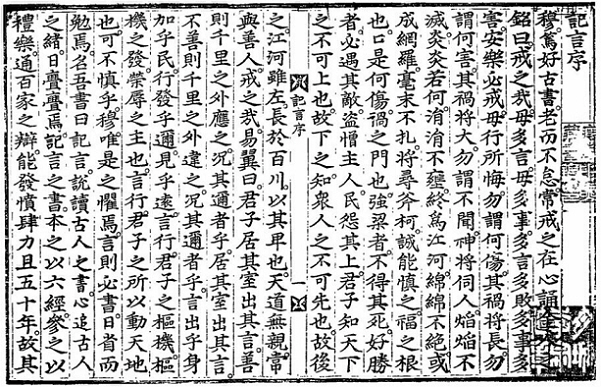 記言序
穆篤好古書老而不怠常戒之在心誦金人之
銘曰戒之哉毋多言毋多事多言多敗多事多
害安樂必戒毋行所悔勿謂何傷其禍將長勿
謂何害其禍將大勿謂不聞神將伺人焰焰不
滅炎炎若何涓涓不壅終爲江河綿綿不絶或
成網羅毫末不扎將尋斧柯誠能愼之福之根
也口是何傷禍之門也強梁者不得其死好勝
者必遇其敵盜憎主人民怨其上君子知天下
之不可上也故下之知衆人之不可先也故後
記言序 一
之江河雖左長於百川以其卑也天道無親常
與善人戒之哉易翼曰君子居其室出其言善
則千里之外應之况其邇者乎居其室出其言
不善則千里之外違之况其邇者乎言出乎身
加乎民行發乎邇見乎遠言行君子之樞機樞
機之發榮辱之主也言行君子之所以動天地
也可不愼乎穆唯是之懼焉言則必書日省而
勉焉名吾書曰記言說讀古人之書心追古人
之緖日亹亹焉記言之書本之以六經參之以
禮樂通百家之辯能發憤肆力且五十年故其